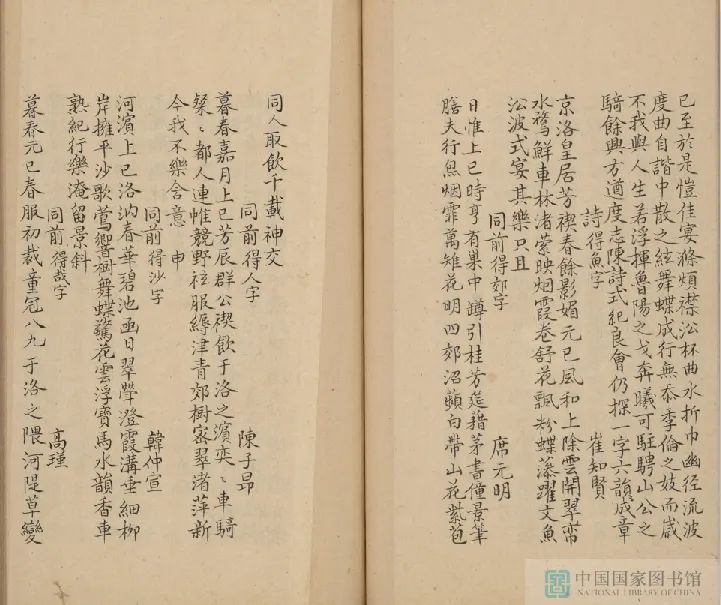 已至於是愷佳宴滌煩襟泛杯曲水折巾幽径流波
度曲自諧中散之絃舞蝶成行無忝季倫之妓而歲
不我與人生若浮揮魯陽之戈奔曦可駐騁山公之
騎餘興方遒度志陳詩式紀良會仍探一字六韻成章
詩得魚字 崔知賢
京洛皇居芳禊春餘影媚元巳風和上除雲開翠帟
水鶩鮮車林渚縈映烟霞卷舒花飄粉蝶藻躍文魚
沿波式宴其樂只且
同前得郊字 席元明
日惟上巳時亨有巢中罇引桂芳筵藉茅書僮景筆
膳夫行炰烟霏萬雉花明四郊沼蘋白帶山花紫苞
同人取飲千載神交
同前得人字 陳子昂
暮春嘉月上巳芳辰群公禊飲于洛之濱奕〻車騎
粲〻都人連帷競野袨服縟津青郊樹密翠渚萍新
今我不樂含意 申
同前得沙字 韓仲宣
河濱上巳洛汭春華碧池涵日翠斝澄霞溝垂細柳
岸擁平沙歌鶯響樹舞蝶驚花雲浮寶馬水韻香車
熟紀行樂淹留景斜
同前得哉字 高瑾
暮春元巳春服初裁童冠八九于洛之隈河隄草變
中国国家图书馆
NATIONAL LIBRARY OF CHINA